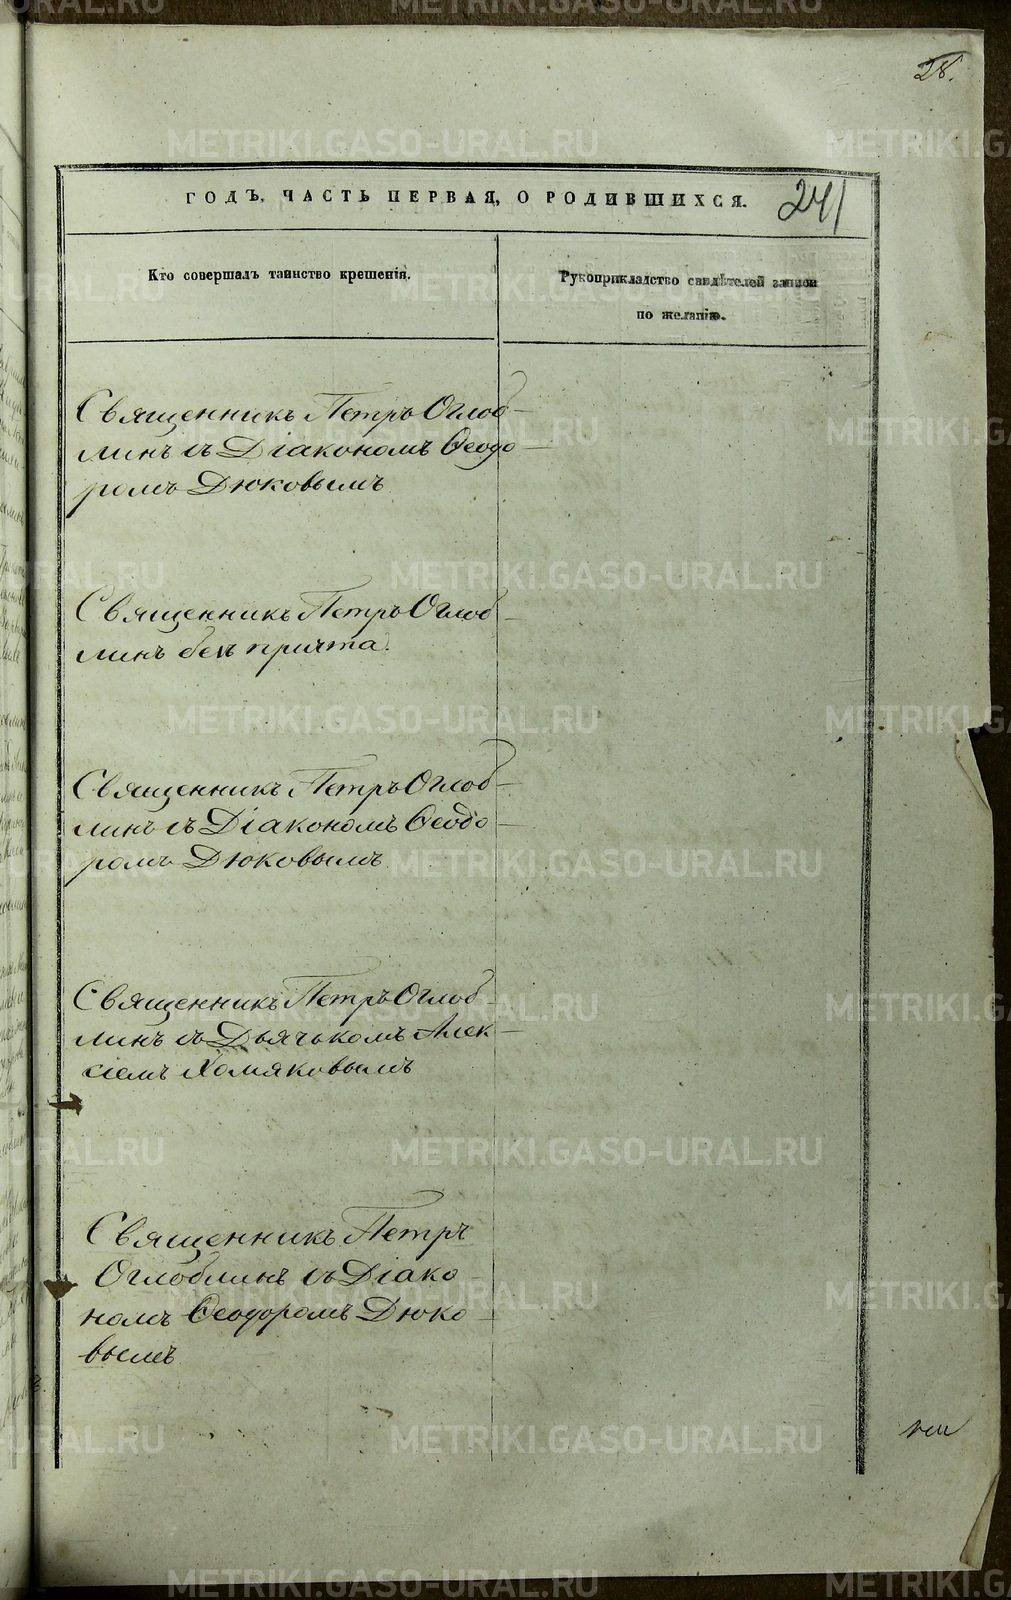 28.
ГОДЪ, ЧАСТЬ ПЕРВАЯ, О РОДИВШИХСЯ.
241
Кто совершалъ таинство крещенія.
Рукоприкладство свидѣтелей записи
по желанію.
Священникъ Петръ Оглоб-
линъ съ Діакономъ Ѳеодо-
ромъ Дюковымъ
Священникъ Петръ Оглоб-
линъ безъ причта.
Священникъ Петръ Оглоб-
линъ съ Діакономъ Ѳеодо-
ромъ Дюковымъ
Священникъ Петръ Оглоб-
линъ съ Дьячькомъ Алек-
сіемъ Хомяковымъ
Священникъ Петръ
Оглоблинъ съ Діако-
номъ Ѳеодоромъ Дюко-
вымъ
METRIKI.GASO-URAL.RU